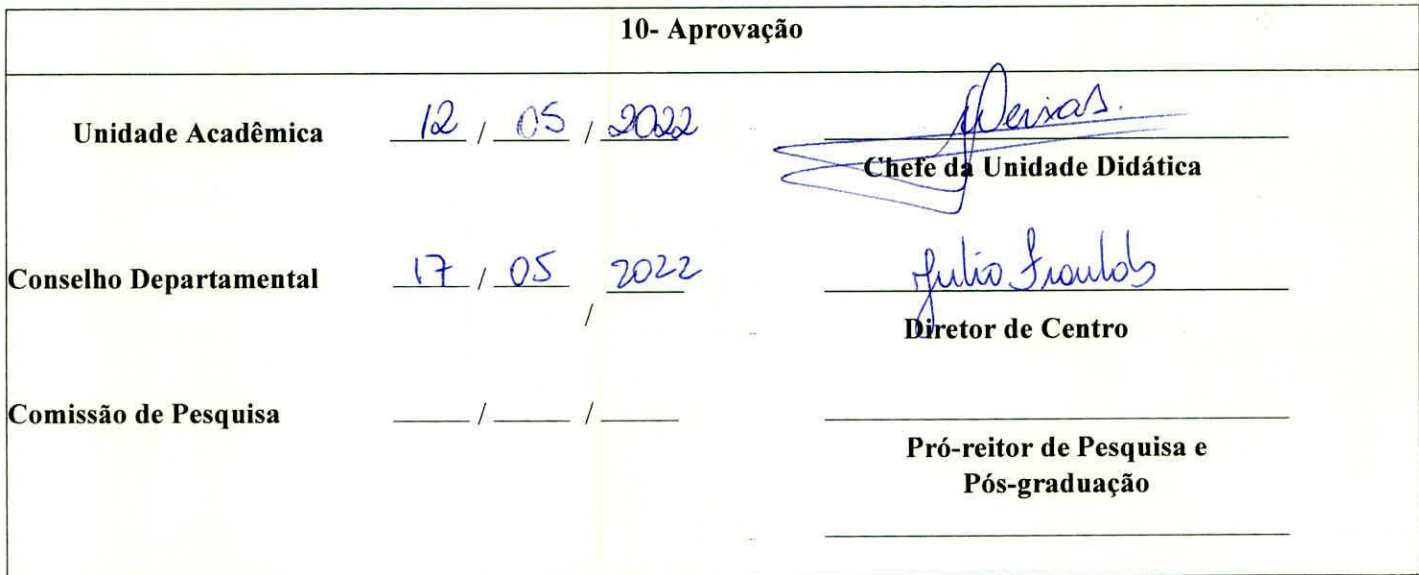 10- Aprovação
Unidade Acadêmica 12 / 05 / 2022
Chefe da Unidade Didática
Conselho Departamental 17 / 05 / 2022
Diretor de Centro
Comissão de Pesquisa ____ / ____ / ____
Pró-reitor de Pesquisa e
Pós-graduação